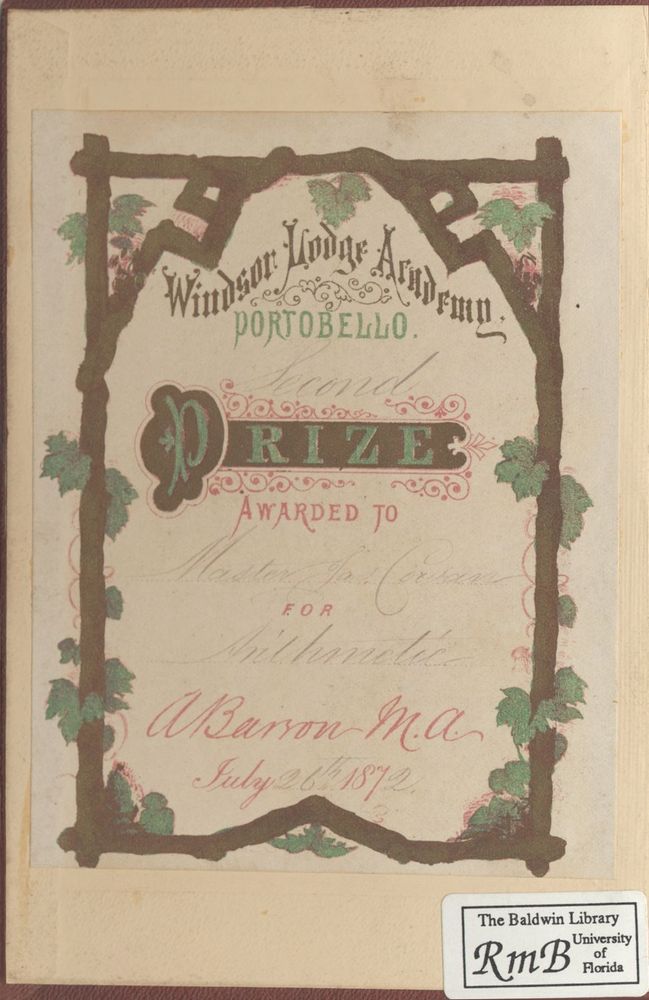 Windsor Lodge Academy.
PORTOBELLO.
Second
PRIZE
AWARDED TO
Master Jas.
FOR
Arithmetic
A Barron M.A.
July 26th 1872.
The Baldwin Library
RmB University
of
Florida